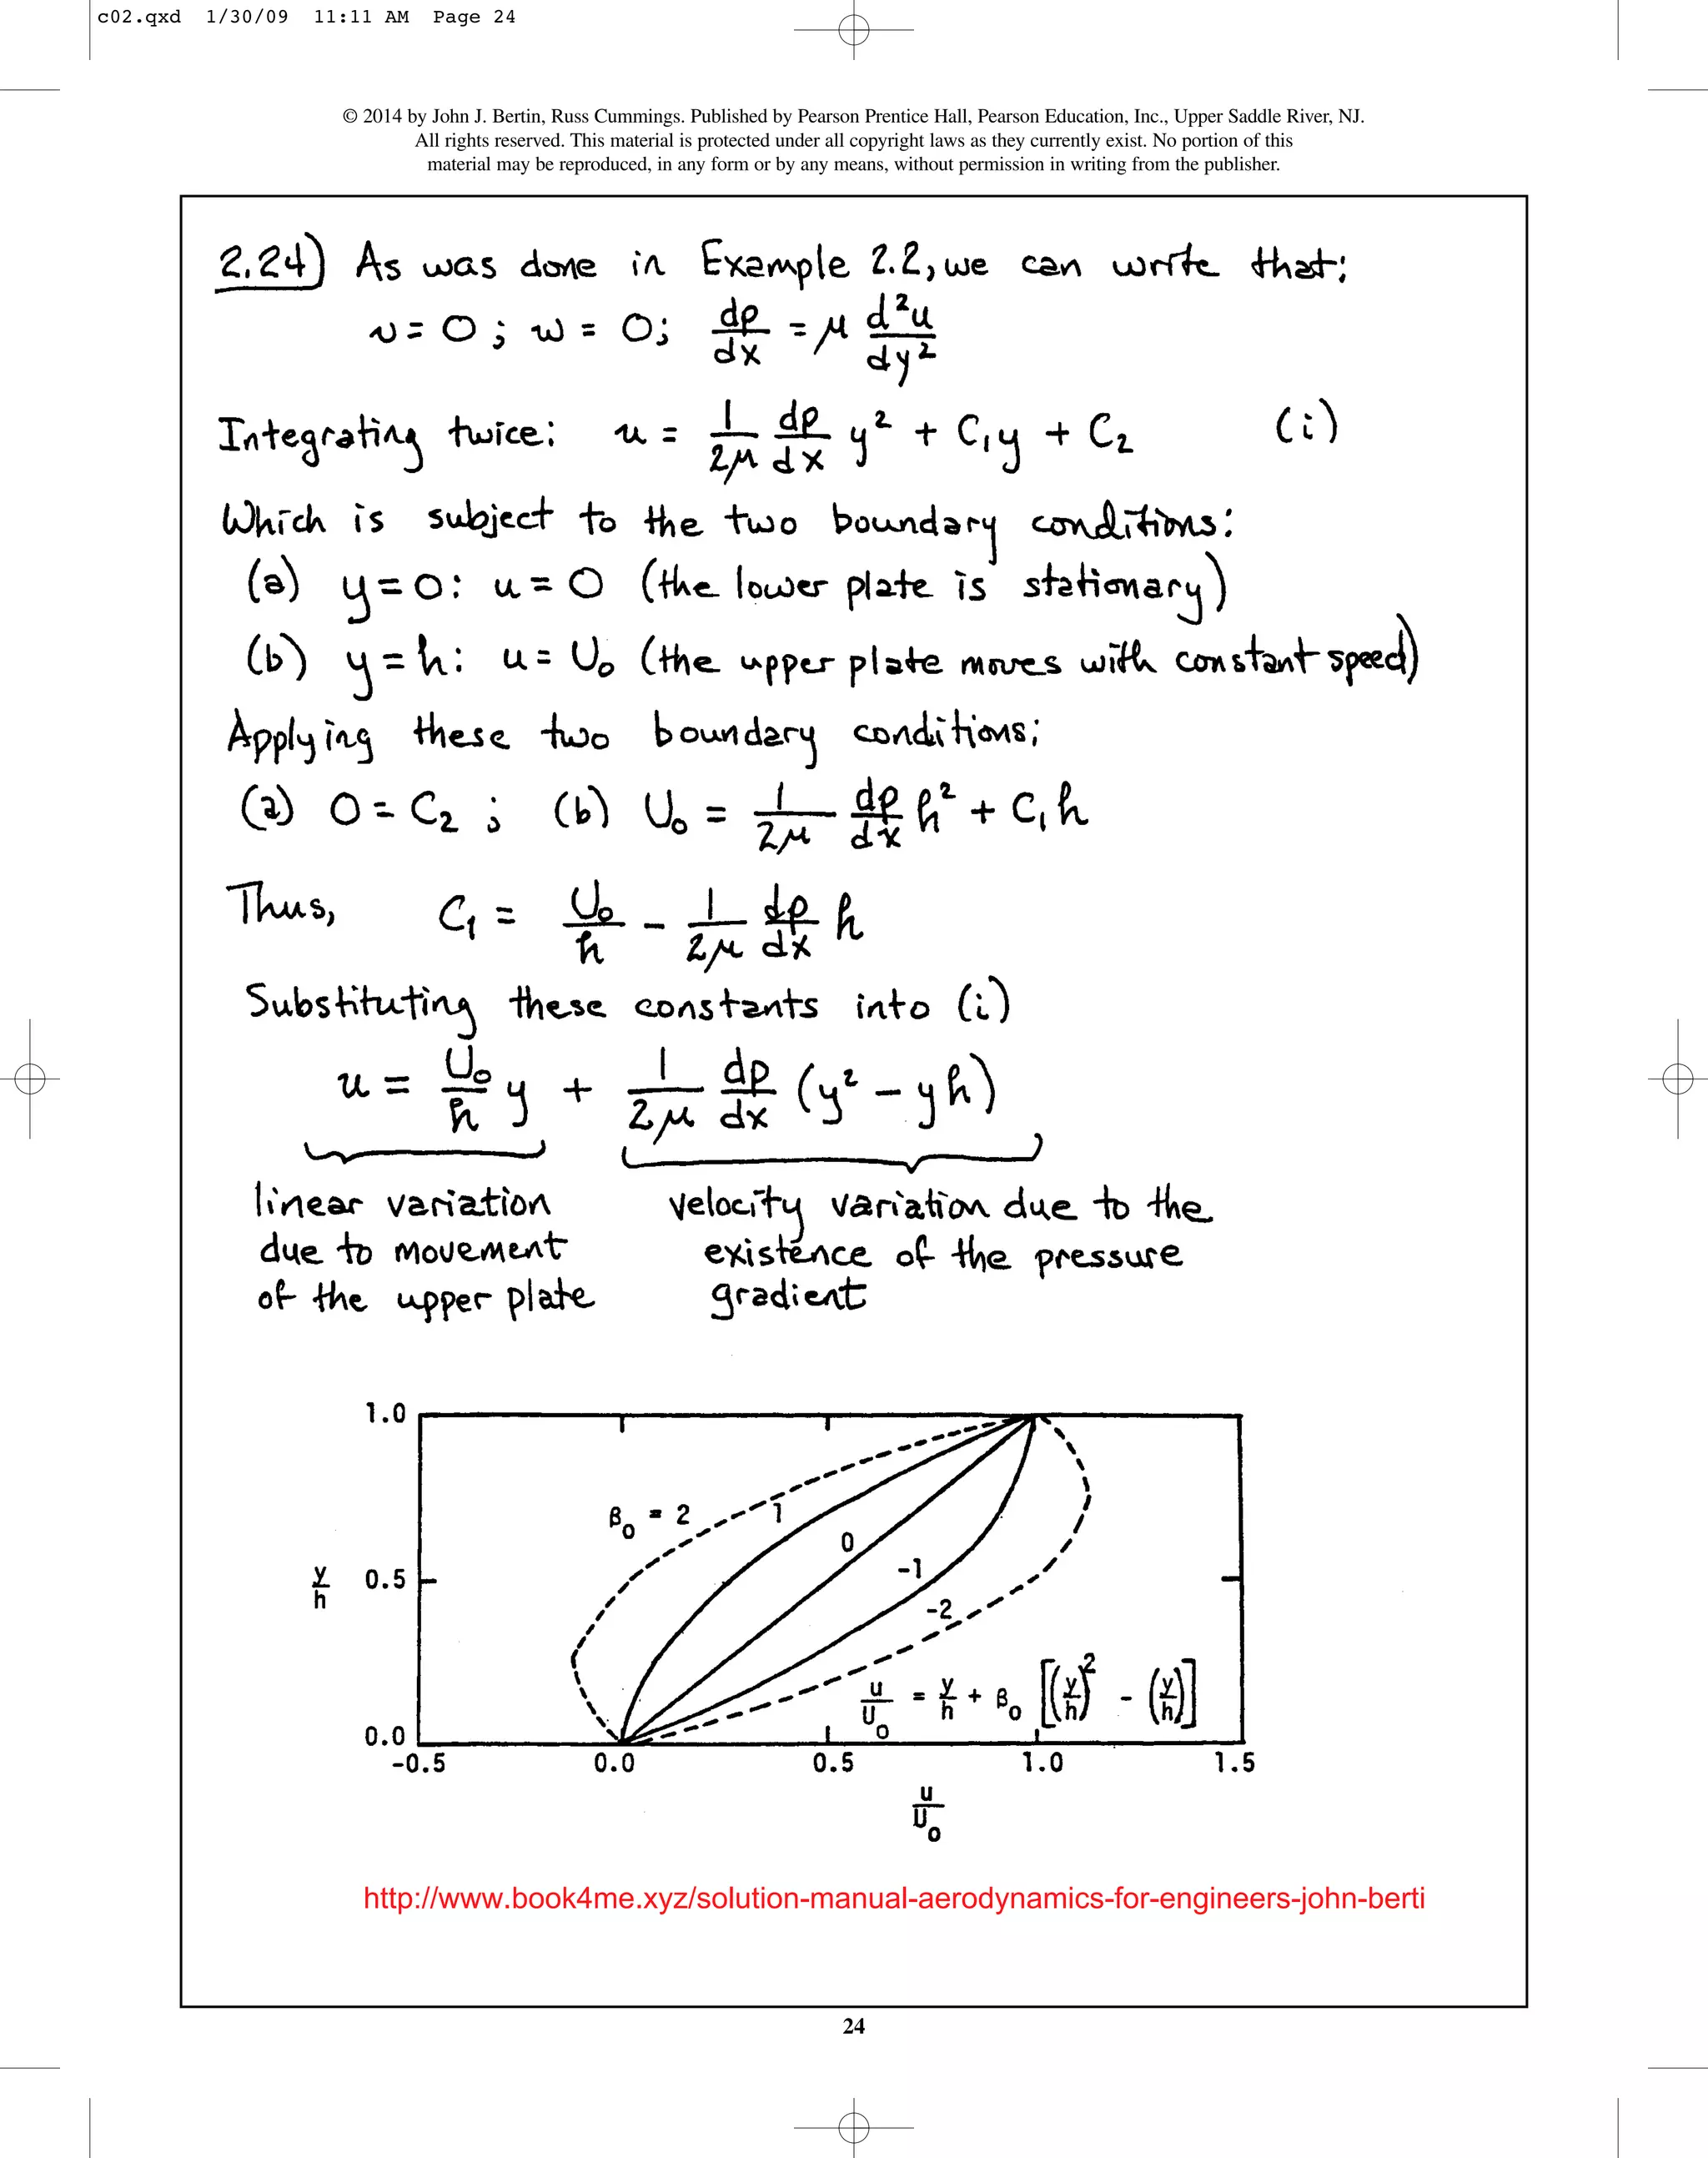 c02.qxd 1/30/09 11:11 AM Page 24
© 2014 by John J. Bertin, Russ Cummings. Published by Pearson Prentice Hall, Pearson Education, Inc., Upper Saddle River, NJ.
All rights reserved. This material is protected under all copyright laws as they currently exist. No portion of this
material may be reproduced, in any form or by any means, without permission in writing from the publisher.
2.24) As was done in Example 2.2, we can write that:
v = 0 ; w = 0; dp/dx = μ d²u/dy²
Integrating twice: u = 1/2μ dp/dx y² + C₁y + C₂ (i)
Which is subject to the two boundary conditions:
(a) y=0: u=0 (the lower plate is stationary)
(b) y=h: u=U₀ (the upper plate moves with constant speed)
Applying these two boundary conditions;
(a) 0 = C₂ ; (b) U₀ = 1/2μ dp/dx h² + C₁h
Thus, C₁ = U₀/h - 1/2μ dp/dx h
Substituting these constants into (i)
u = U₀/h y + 1/2μ dp/dx (y² - yh)
linear variation
due to movement
of the upper plate
velocity variation due to the
existence of the pressure
gradient
1.0
β₀ = 2
1
0
-1
-2
y/h
0.5
u/U₀ = y/h + β₀ [(y/h)² - (y/h)]
0.0
-0.5 0.0 0.5 1.0 1.5
u/U₀
http://www.book4me.xyz/solution-manual-aerodynamics-for-engineers-john-berti
24